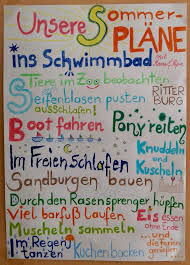 Unsere Sommer-
PLÄNE
ins Schwimmbad
Tiere im Zoo beobachten
Seifenblasen pusten
RITTER
BURG
ausschlafen!
Boot fahren
Pony reiten
Im Freien Schlafen
Knuddeln
und
Kuscheln
Sandburgen bauen
Durch den Rasensprenger hüpfen
Viel barfuß laufen
Eis essen
ohne Ende
Muscheln sammeln
...und
die Ferien
genießen
Im Regen
tanzen
Kuchen backen